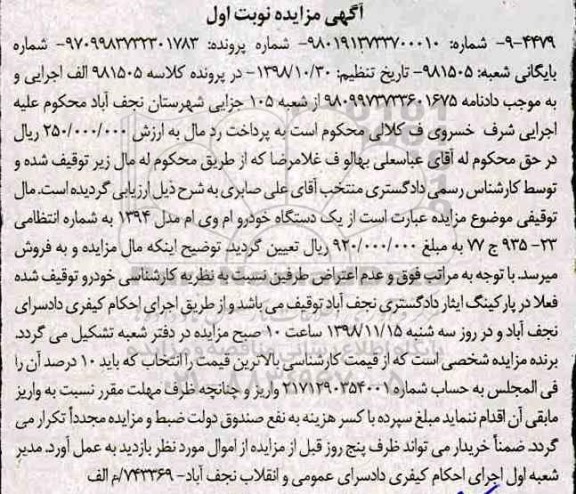 آگهی مزایده نوبت اول
۴۴۷۹-۹- شماره: ۹۸۰۱۹۱۳۷۳۳۷۰۰۰۱۰- شماره پرونده: ۹۷۰۹۹۸۳۷۳۲۳۰۱۷۸۳- شماره
بایگانی شعبه: ۹۸۱۵۰۵- تاریخ تنظیم: ۱۳۹۸/۱۰/۳۰- در پرونده کلاسه ۹۸۱۵۰۵ الف اجرایی و
به موجب دادنامه ۹۸۰۹۹۷۳۷۳۳۶۰۱۶۷۵ از شعبه ۱۰۵ جزایی شهرستان نجف آباد محکوم علیه
اجرایی شرف خسروی ف کلالی محکوم است به پرداخت رد مال به ارزش ۲۵۰/۰۰۰/۰۰۰ ریال
در حق محکوم له آقای عباسعلی بهالو ف غلامرضا که از طریق محکوم له مال زیر توقیف شده و
توسط کارشناس رسمی دادگستری منتخب آقای علی صابری به شرح ذیل ارزیابی گردیده است. مال
توقیفی موضوع مزایده عبارت است از یک دستگاه خودرو ام وی ام مدل ۱۳۹۴ به شماره انتظامی
۲۳- ۹۳۵ ج ۷۷ به مبلغ ۹۲۰/۰۰۰/۰۰۰ ریال تعیین گردید. توضیح اینکه مال مزایده و به فروش
میرسد. با توجه به مراتب فوق و عدم اعتراض طرفین نسبت به نظریه کارشناسی خودرو توقیف شده
فعلا در پارکینگ ایثار دادگستری نجف آباد توقیف می باشد و از طریق اجرای احکام کیفری دادسرای
نجف آباد و در روز سه شنبه ۱۳۹۸/۱۱/۱۵ ساعت ۱۰ صبح مزایده در دفتر شعبه تشکیل می گردد.
برنده مزایده شخصی است که از قیمت کارشناسی بالاترین قیمت را انتخاب که باید ۱۰ درصد آن را
فی المجلس به حساب شماره ۲۱۷۱۲۹۰۳۵۴۰۰۱ واریز و چنانچه ظرف مهلت مقرر نسبت به واریز
مابقی آن اقدام ننماید مبلغ سپرده با کسر هزینه به نفع صندوق دولت ضبط و مزایده مجدداً تکرار می
گردد. ضمناً خریدار می تواند ظرف پنج روز قبل از مزایده از اموال مورد نظر بازدید به عمل آورد. مدیر
شعبه اول اجرای احکام کیفری دادسرای عمومی و انقلاب نجف آباد- ۷۴۳۳۶۹/م الف